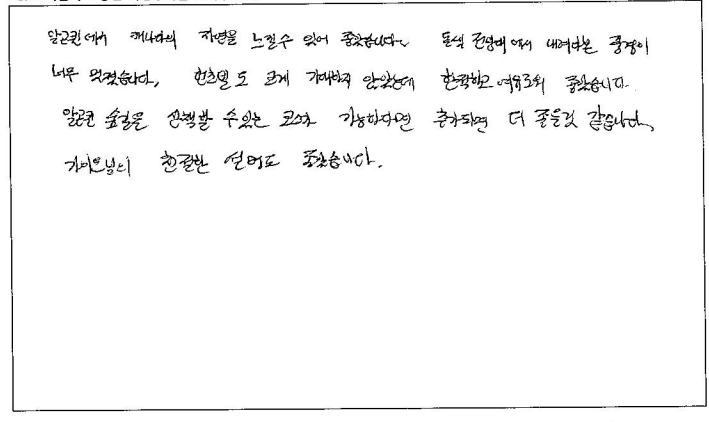 알곤퀸에서 캐나다의 자연을 느낄수 있어 좋았습니다. 돌섹 전망대에서 내려다본 풍경이
너무 멋졌습니다. 헌츠빌도 크게 기대하지 않았는데 한적하고 여유로워 좋았습니다.
알곤퀸 숲길을 산책할 수 있는 코스가 가능하다면 추가되면 더 좋을것 같습니다.
가이드님의 친절한 설명도 좋았습니다.